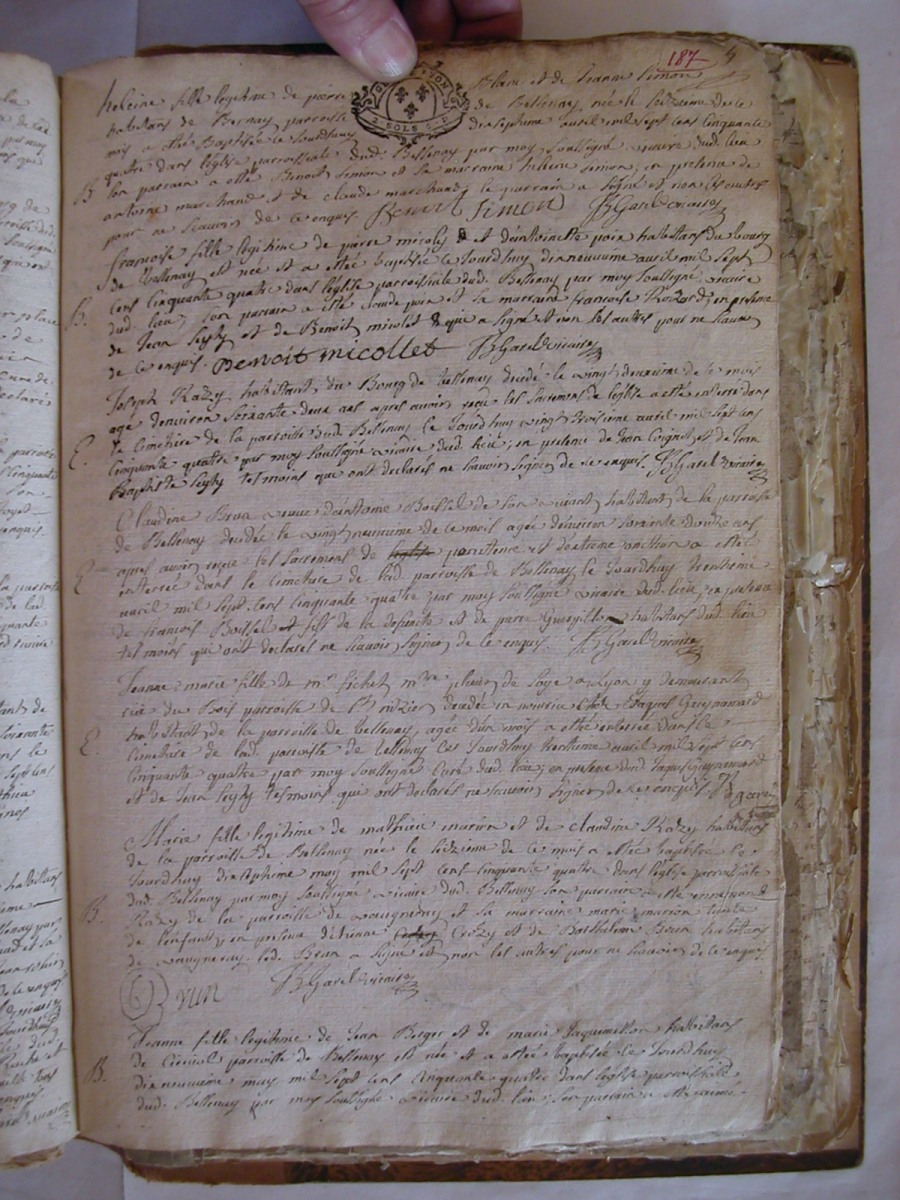 187
heleine fille legitime de pierre Blanc et de Jeanne Simon
habitans de Bernay parroisse de Bessenay, née le seizieme de ce
mois a etté Baptisée ce Jourdhuy dixseptieme avril mil sept cens cinquante
quatre dans leglise parroissiale dud. Bessenay par moy soussigné vicaire dud. lieu
B. son parrain a etté Benoit Simon et sa marraine heleine Simon, en presence de
antoine marchand et de claude marchand, le parrain a signé et non les autres
pour ne scavoir de ce enquis. Benoit Simon JB Garel vicaire
francoise fille legitime de pierre micolet et d'entoinette poin habitans du bourg
de Bessenay est née et a etté baptisée ce Jourdhuy dixneuvieme avril mil sept
cens cinquante quatre dans leglise parroissiale dud. Bessenay par moy soussigné vicaire
B. dud. lieu, son parrain a etté claude poin et sa marraine francoise, en presence
de Jean et de Benoit micolet qui a signé et non les autres pour ne scavoir
de ce enquis. Benoit micollet JB Garel vicaire
Joseph Razy habitant du Bourg de Bessenay decedé le vingt deuxieme de ce mois
agé denviron soixante deux ans apres avoir receu les sacremens de leglise a etté enterré dans
E. le cimetiere de la parroisse dud. Bessenay le Jourdhuy vingt troisieme avril mil sept cens
cinquante quatre par moy soussigné vicaire dud. lieu, en presence de Jean Coignet et de Jean
Baptiste tesmoins que ont declarés ne scavoir signer de ce enquis. JB Garel vicaire
Claudine Brun veuve d'entoine Boissel de son vivant habitant de la parroisse
de Bessenay decedée le vingt neuvieme de ce mois agée denviron soixante ans
apres avoir receu les sacremens de penitence et dextreme onction a etté
E. enterrée dans le cimetiere de lad. parroisse de Bessenay le Jourdhuy trentieme
avril mil sept cens cinquante quatre par moy soussigné vicaire dud. lieu, en presence
de francois Boissel et fils de la defuncte et de pierre habitans dud. lieu
tesmoins qui ont declarés ne scavoir signer de ce enquis. JB Garel vicaire
Jeanne marie fille de mr fichet mtre de soye a Lyon y demeurant
rue du Bois parroisse de St nizier decedée en nourrice chés Jaques
habitant de la parroisse de Bessenay, agée d'un mois a etté enterrée dans le
E. cimetiere de lad. parroisse de Bessenay ce Jourdhuy trentieme avril mil sept cens
cinquante quatre par moy soussigné Curé dud. lieu, en presence dud. Jaques
et de Jean tesmoins que ont declarés ne scavoir signer de ce enquis
Marie fille legitime de mathieu marion et de claudine Razy habitans
de la parroisse de Bessenay née le seizieme de ce mois a etté baptisée le
Jourdhuy dixseptieme may mil sept cens cinquante quatre dans leglise parroissiale
dud. Bessenay par moy soussigné vicaire dud. Bessenay son parrain a etté
B. Razy de la parroisse de vaugneray et sa marraine marie marion tante
de lenfant, en presence d'etienne Crozy et de Barthelemi Brun habitans
de vaugneray led. Brun a signé et non les autres pour ne scavoir de ce enquis
Brun JB Garel vicaire
Jeanne fille legitime de Jean Berger et de marie Jaquemetton habitans
de parroisse de Bessenay est née et a etté baptisée le Jourdhuy
B. dixneuvieme may mil sept cens cinquante quatre dans leglise parroissiale
dud. Bessenay par moy soussigné vicaire dud. lieu, son parrain a etté